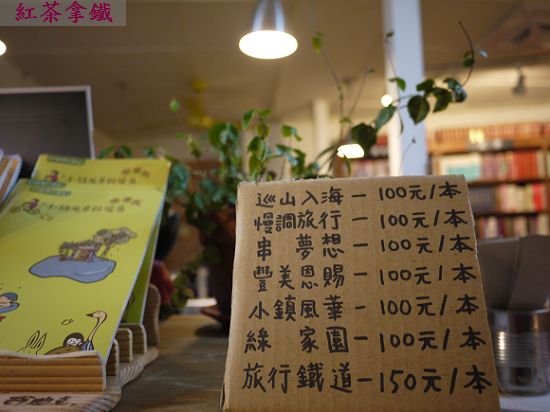 紅茶拿鐵
巡山入海－100元/本
慢調旅行－100元/本
串夢想－100元/本
豐美恩賜－100元/本
小鎮風華－100元/本
綠家園－100元/本
旅行鐵道－150元/本